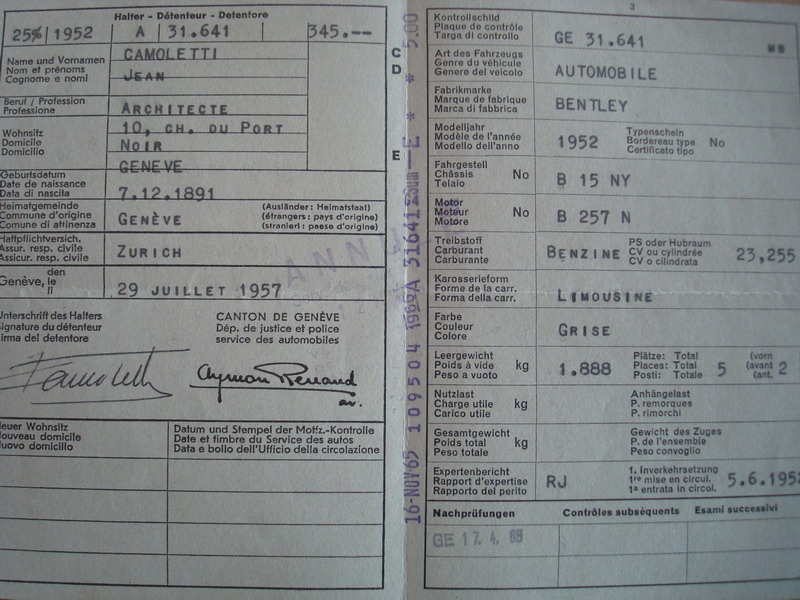 Halter - Détenteur - Detentore
25% 1952 A 31.641 345.--
Name und Vornamen
Nom et prénoms
Cognome e nomi
CAMOLETTI
JEAN
Beruf / Profession
Professione
ARCHITECTE
Wohnsitz
Domicile
Domicilio
10, CH. DU PORT
NOIR
GENEVE
Geburtsdatum
Date de naissance
Data di nascita
7.12.1891
Heimatgemeinde
Commune d'origine
Comune di attinenza
GENÈVE
(Ausländer : Heimatstaat)
(étrangers : pays d'origine)
(stranieri : paese d'origine)
Haftpflichtversich.
Assur. resp. civile
Assicur. resp. civile
ZURICH
den
Genève, le
il
29 JUILLET 1957
Unterschrift des Halters
Signature du détenteur
Firma del detentore
CANTON DE GENÈVE
Dép. de justice et police
service des automobiles
Camoletti
av.
Neuer Wohnsitz
Nouveau domicile
Nuovo domicilio
Datum und Stempel der Motfz.-Kontrolle
Date et timbre du Service des autos
Data e bollo dell'Ufficio della circolazione
C
D
E
16-NOV 65 109504
3
Kontrollschild
Plaque de contrôle
Targa di controllo
GE 31.641
Art des Fahrzeugs
Genre du véhicule
Genere del veicolo
AUTOMOBILE
Fabrikmarke
Marque de fabrique
Marca di fabbrica
BENTLEY
Modelljahr
Modèle de l'année
Modello dell'anno
1952
Typenschein
Bordereau type No
Certificato tipo
Fahrgestell
Châssis No
Telaio
B 15 NY
Motor
Moteur No
Motore
B 257 N
Treibstoff
Carburant
Carburante
BENZINE
PS oder Hubraum
CV ou cylindrée
CV o cilindrata
23,255
Karosserieform
Forme de la carr.
Forma della carr.
LIMOUSINE
Farbe
Couleur
Colore
GRISE
Leergewicht
Poids à vide kg
Peso a vuoto
1.888
Plätze: Total
Places: Total
Posti: Totale
5
(vorn
(avant
(ant.
2
Nutzlast
Charge utile kg
Carico utile
Anhängelast
P. remorques
P. rimorchi
Gesamtgewicht
Poids total kg
Peso totale
Gewicht des Zuges
P. de l'ensemble
Peso convoglio
Expertenbericht
Rapport d'expertise
Rapporto del perito
RJ
1. Inverkehrsetzung
1re mise en circul.
1a entrata in circol.
5.6.195
Nachprüfungen Contrôles subséquents Esami successivi
GE 17. 4.